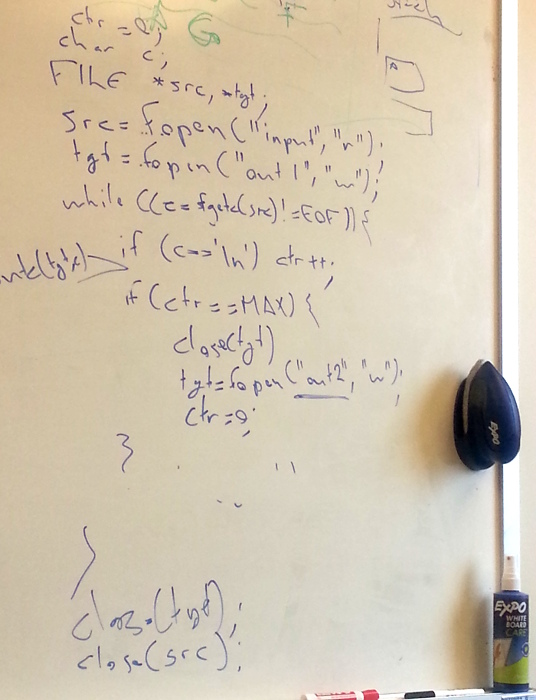 ctr = 0;
char c;
FILE *src, *tgt;
src = fopen("input", "r");
tgt = fopen("out1", "w");
while ((c = fgetc(src) != EOF)) {
if (c == '\n') ctr++;
if (ctr == MAX) {
close(tgt)
tgt = fopen("out2", "w");
ctr = 0;
}
}
close(tgt);
close(src);
EXPO
EXPO
WHITE
BOARD
CARE